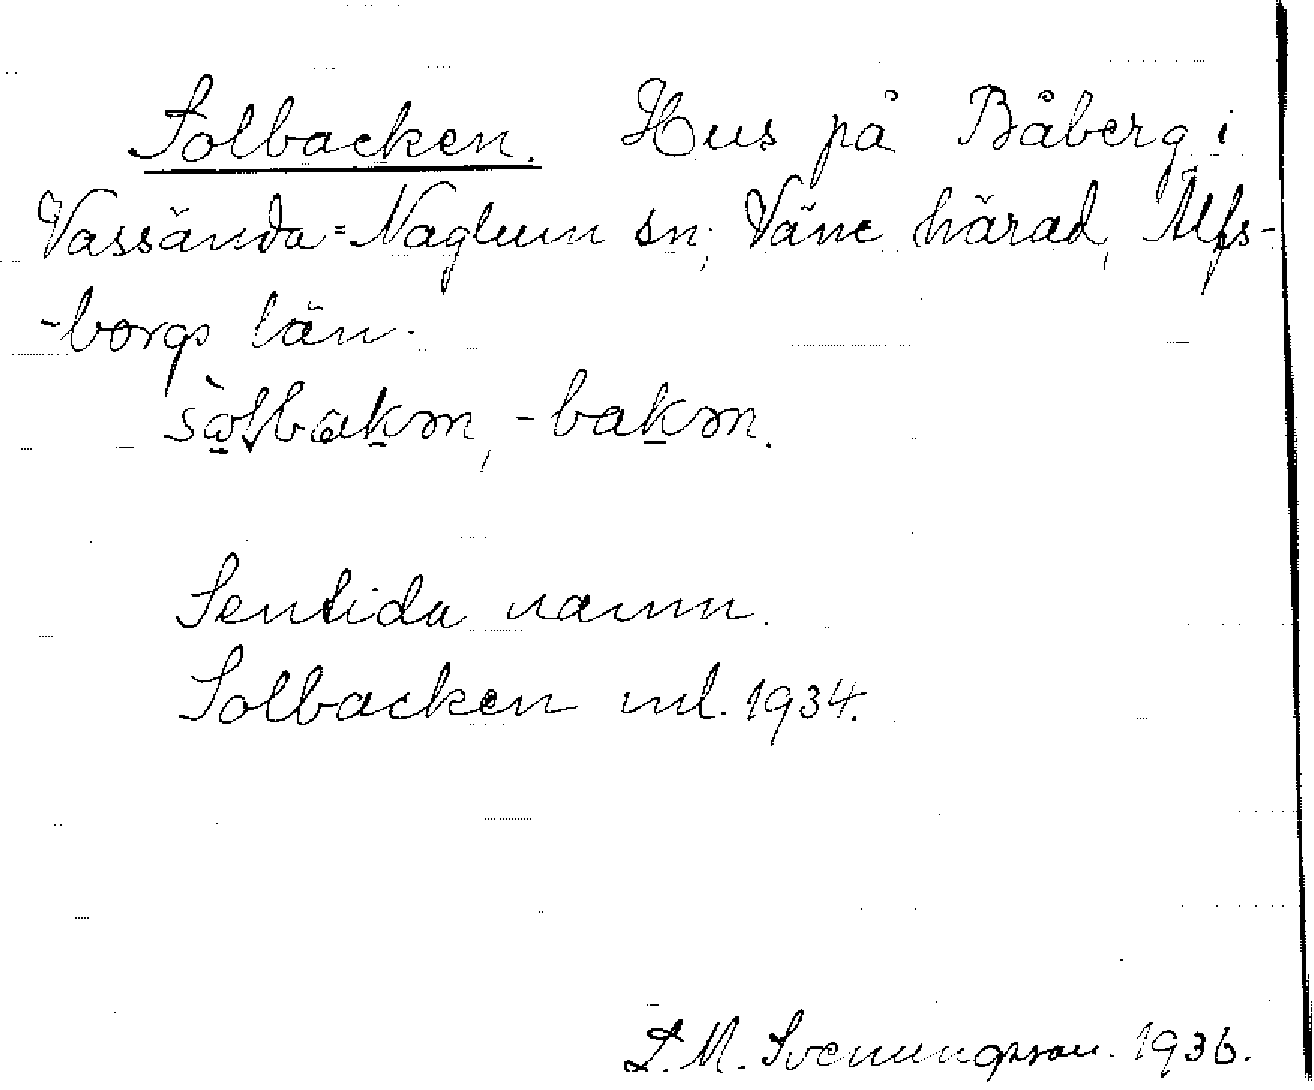 Solbacken. Hus på Båberg i
Vassända=Naglum sn, Väne härad, Älfs-
-borgs län.
-bakm.
Sentida namn.
Solbacken ml. 1934.
D. M. Svenungsson. 1936.